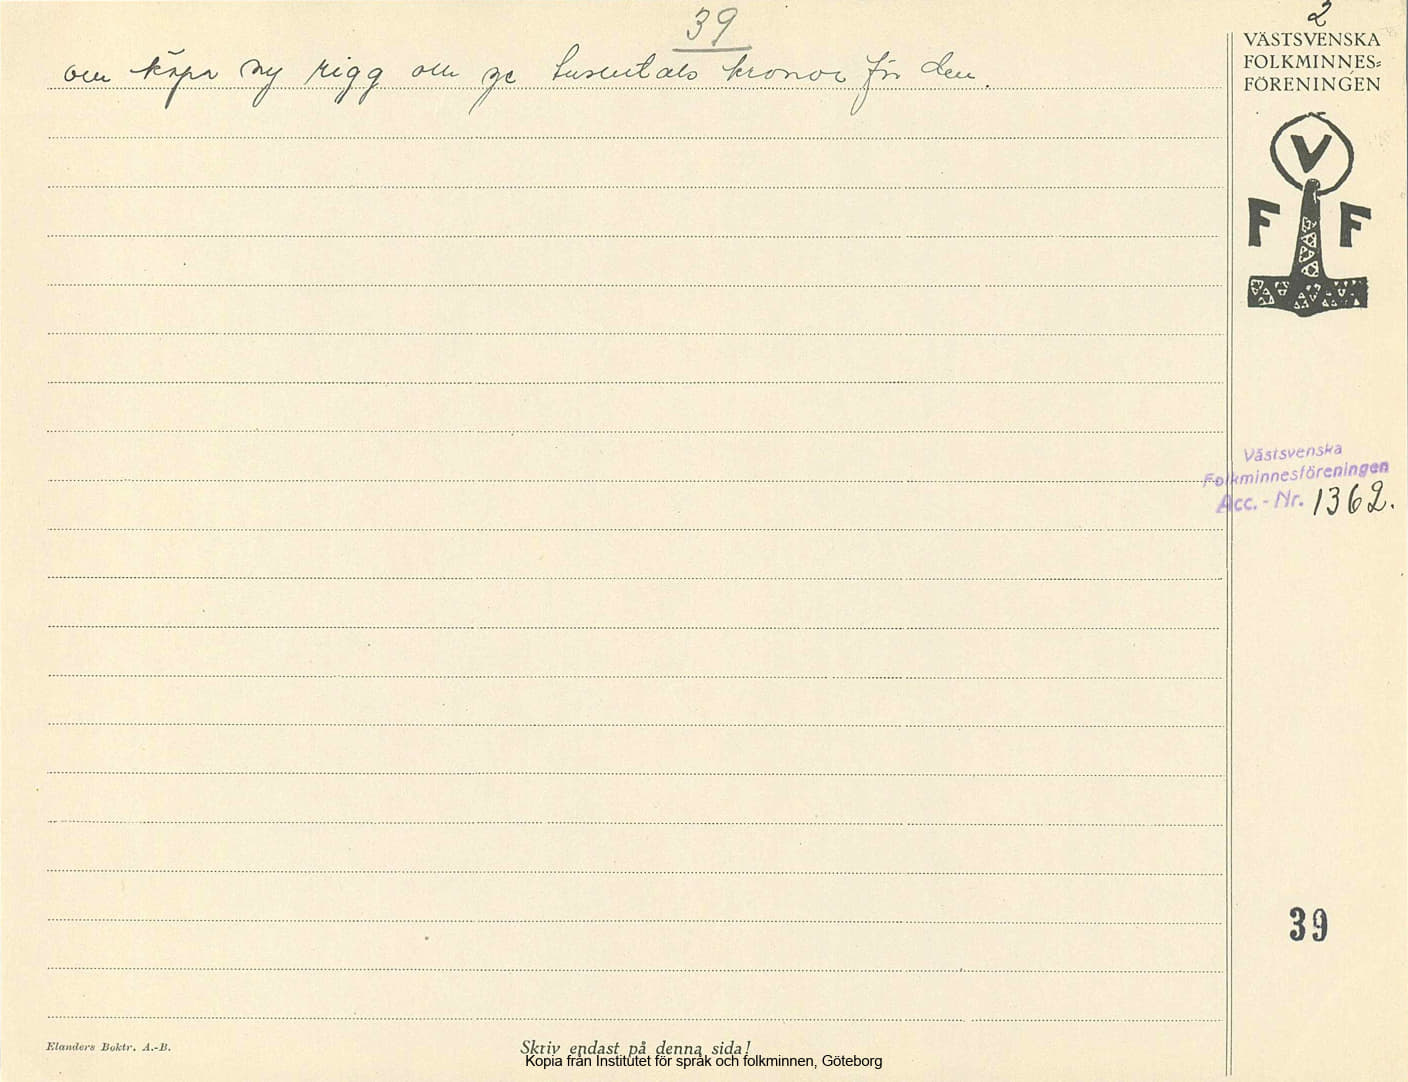 39
och köpa ny rigg och ge tusentals kronor för den.
2
VÄSTSVENSKA
FOLKMINNES=
FÖRENINGEN
V
F F
Västsvenska
Folkminnesföreningen
Acc. - Nr. 1362.
39
Elanders Boktr. A.-B.
Skriv endast på denna sida!
Kopia från Institutet för språk och folkminnen, Göteborg